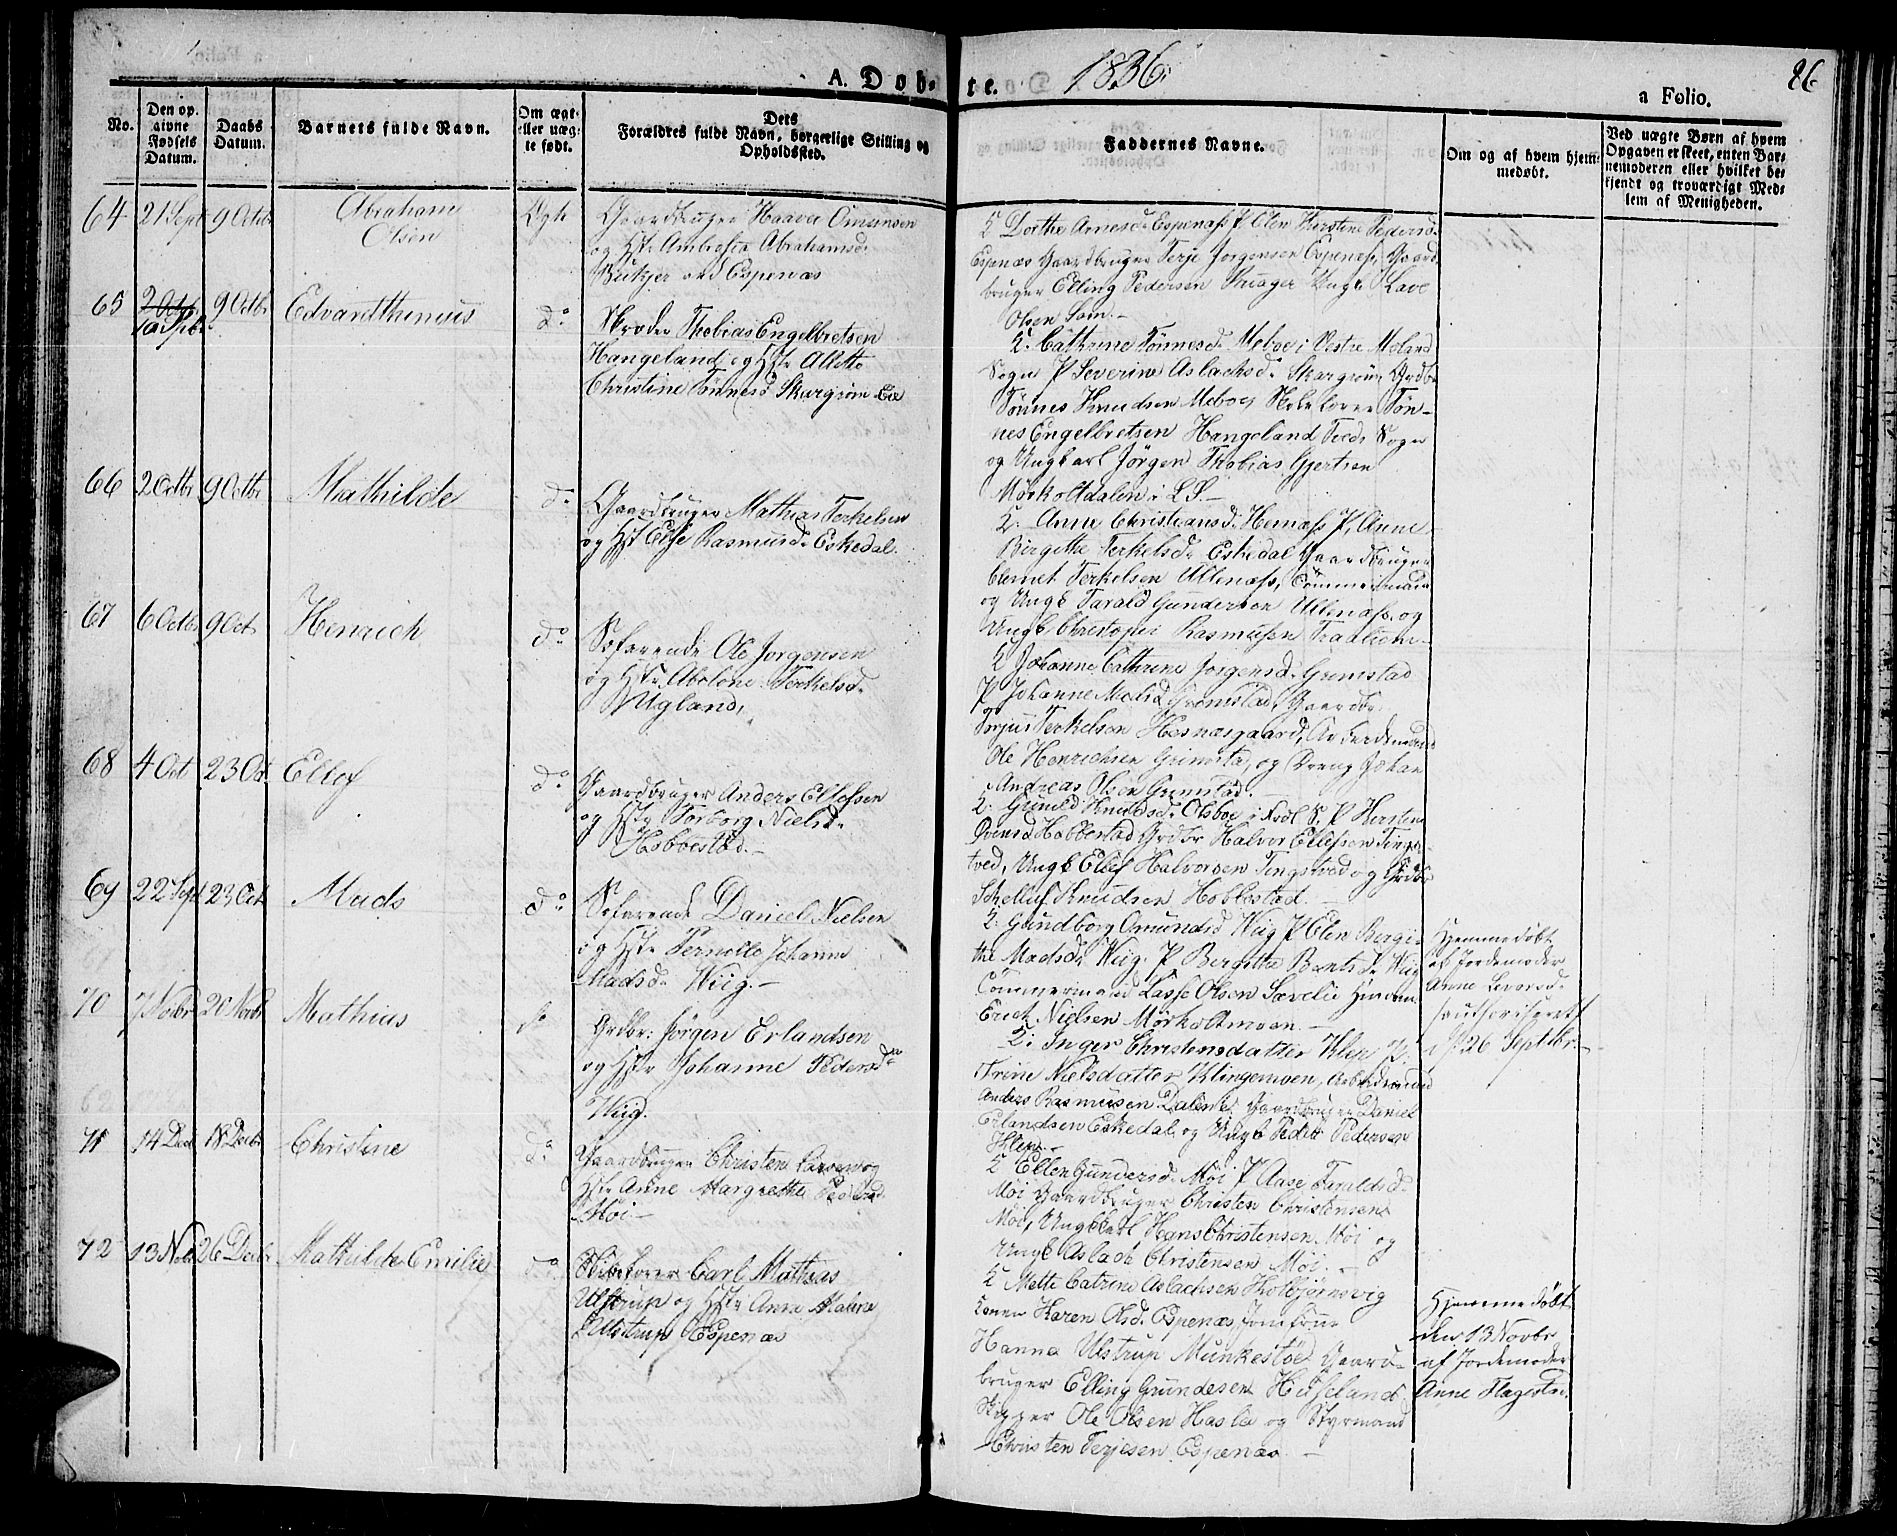 A. Döb-
te. 1836.
a Folio. 86
No.
Den op-
givne
Fødsels
Datum.
Daabs
Datum.
Barnets fulde Navn.
Om ægte
eller uæg-
te født.
Dets
Forældres fulde Navn, borgerlige Stilling og
Opholdssted.
Faddernes Navne.
Om og af hvem hjem-
medøbt.
Ved uægte Børn af hvem
Opgaven er skeet, enten Bar-
nemoderen eller hvilket be-
kjendt og troværdigt Med-
lem af Menigheden.
64 21 Sept 9 Octbr Abraham
Olsen
Ægte
Gaardbruger Haaver Omunsen
og Hst: Ambrosia Abrahamsd:
Espenæs
Dorthe Arnesd: Espenæss P. Elen Kirstine Pedersd:
Espenæs Gaardbruger Terje Jorgensen Espenæss, Gaard
bruger Elling Pedersen Lave
Olsen Som.-
65 2 Octb
10 Sebr 9 Octbr Edvardthenius do
Skræder Thobias Engelbretsen
Hangeland og Hst: Allette
Christine Tönnesd Skurgrøm Eie
2. Cathrine Tönnesd: Meboe i Vestre Moland
Sogn P Severine Aslachsd: Skargrøm, Grdbr
Tönnes Knudsen Meboe, Skolelærer Tön-
nes Engelbretsen Hangeland Treds Sogn
og Ungkarl Jörgen Thobias Gjertsen
Mörkoltdalen i L.S.-
66 2 Octbr 9 Octbr Mathilde do
Gaardbruger Mathias Terkelsen
og Hst Else Rasmusd: Eskedal.
2. Anne Christiansd: Hemæss P, Anne
Birgithe Terkelsd: Eskedal Gaardbruger
Clemet Terkelsen Ullenæss, Tömmermand
og Ungk Tarald Gundersen Ullenæss, og
Ungk Christopher Rasmussen
67 6 Octbr 9 Oct Henrich do
Söfarende Ole Jorgensen
og Hst: Abolone Terkelsd:
Ugland,
2 Johanne Cathrine Jorgensd: Grimstad
P Johanne Madsd Gromstad, Gaardbr.
Torjus Terkelsen Hesnæsgaard, Arbeidsmand
Ole Henrichsen Grimsta, og Dreng Johan
Andreas Olsen Grimstad.-
68 4 Oct 23 Oct Ellef do
Gaardbruger Anders Ellefsen
og Hst: Torborg Nielsd:
Hobbestad.-
2. Gunild Knudsd: Olsboe i S. P Kirsten
Svensd Habbestad Grdbr Halvor Ellefsen Tings-
tved, Ungk Ellef Halvorsen Tingstved og Grdbr
Schelluf Knudsen Hobbestad.-
69 22 Sept 23 Oct Mads do
Söfarende Daniel Nielsen
og Hst: Pernelle Johanne
Madsd: Wiig.-
2. Gundborg Omundsd Wiig P Elen Bergi-
the Madsd: Wiig. P Bergitta Berntsd: Wiig
Tömmermand Lasse Olsen Sævelie
Erich Nielsen Mörkoltmoen.-
Hjemmedöbt
af Jordemoder
Anne Levorsd:
(authoriseret)
d 26 Septbr.-
70 7 Novbr 20 Novbr Mathias do
Grdbr: Jörgen Erlandsen
og Hst: Johanne Pedersdr
Wiig.
2: Inger Christensdatter Klep P.
Trine Nielsdatter Klingemoen, Arbeidsmand
Anders Rasmussen Dalene, Gaardbruger Daniel
Erlandsen Eskedal, og Ungk Peder Pedersen
Klep.-
71 14 Decb 18 Decbr Christine do
Gaardbruger Christen Larsen og
Hst: Anne Margrethe Pedersd:
Möi.-
2 Ellen Gundersd: Möi P Aase Taraldsd:
Möi Gaardbruger Christen Christensen
Möi, Ungkarl Hans Christensen Möi og
Ungk Aslach Christensen Möi.-
72 13 Nov 26 Decbr Mathilde Emilie do
Skibsförer Carl Mathias
Ulstrup og Hst: Anna Malene
Ulstrup Espenæs
2 Mette Catrine Aslachsen Kolbjørnsvig
Konen Karen Olsd: Espenæs, Jomfrue
Hanna Ulstrup Munkestöe Gaard-
bruger Elling Gundesen Hesseland
Skipper Ole Olsen Haslie og Styrmand
Christen Terjesen Espenæs.-
Hjemmedöbt
den 13 Novbr
af Jordemoder
Anne Flagestr.